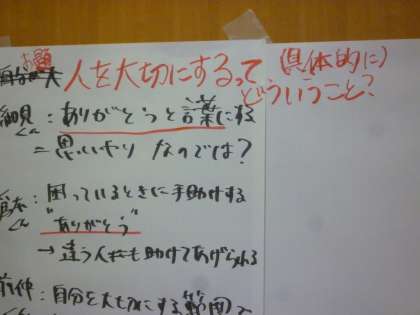 お題 人を大切にするって(具体的に)
どういうこと?
細見くん:ありがとうと言葉にする
=思いやり なのでは?
くん:困っているときに手助けする
"ありがとう"
→違う人にも助けてあげられる
:自分を大切にする範囲で